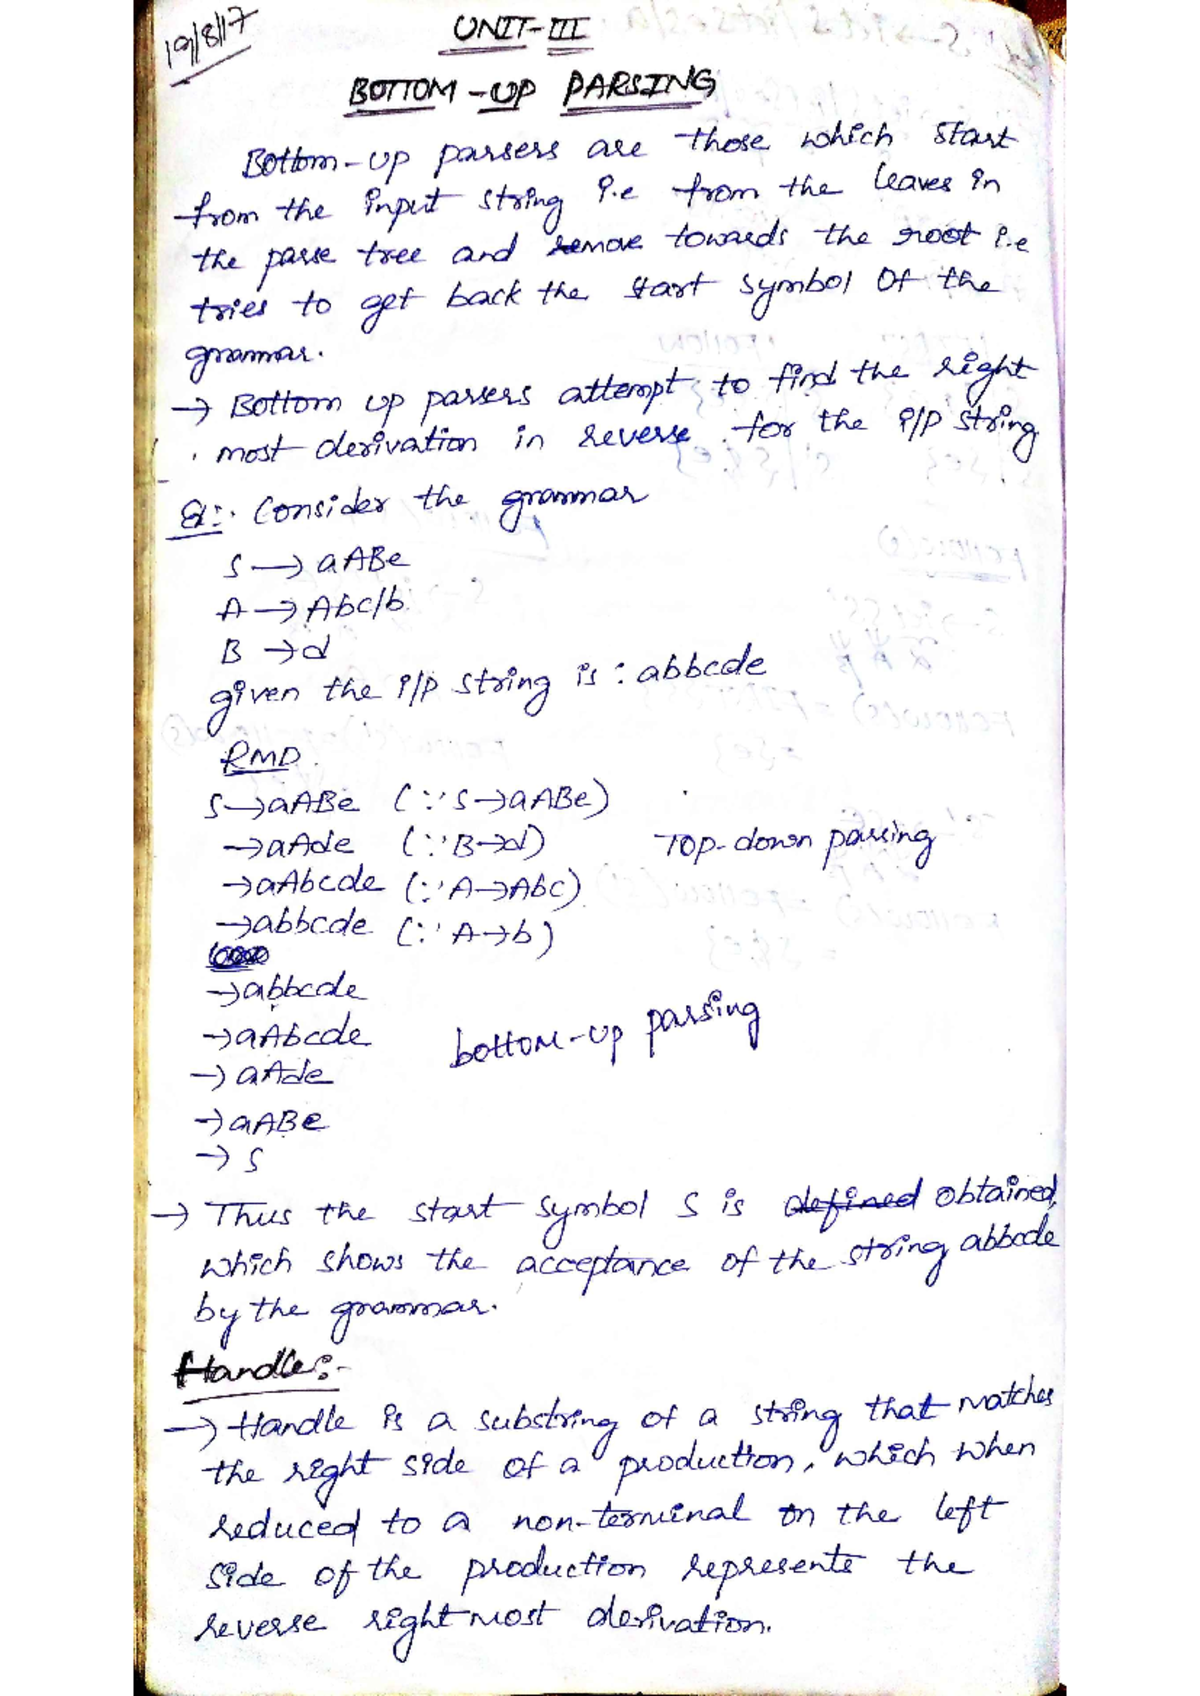 19/8/17
UNIT-III
BOTTOM-UP PARSING
Bottom-up parsers are those which start
from the input string i.e from the leaves in
the parse tree and remove towards the root i.e
tries to get back the start symbol of the
grammar.
→ Bottom up parsers attempt to find the right
most derivation in reverse for the i/p string
Ex:- Consider the grammar
S → aABe
A → Abc/b
B → d
given the i/p string is : abbcde
RMD
S→aABe (∵ S→aABe)
→aAde (∵ B→d) Top-down parsing
→aAbcde (∵ A→Abc)
→abbcde (∵ A→b)
→abbcde
→aAbcde bottom-up parsing
→aAde
→aABe
→S
→ Thus the start symbol S is defined obtained,
which shows the acceptance of the string abbcde
by the grammar.
Handle:-
→ Handle is a substring of a string that matches
the right side of a production, which when
reduced to a non-terminal on the left
side of the production represents the
reverse rightmost derivation.